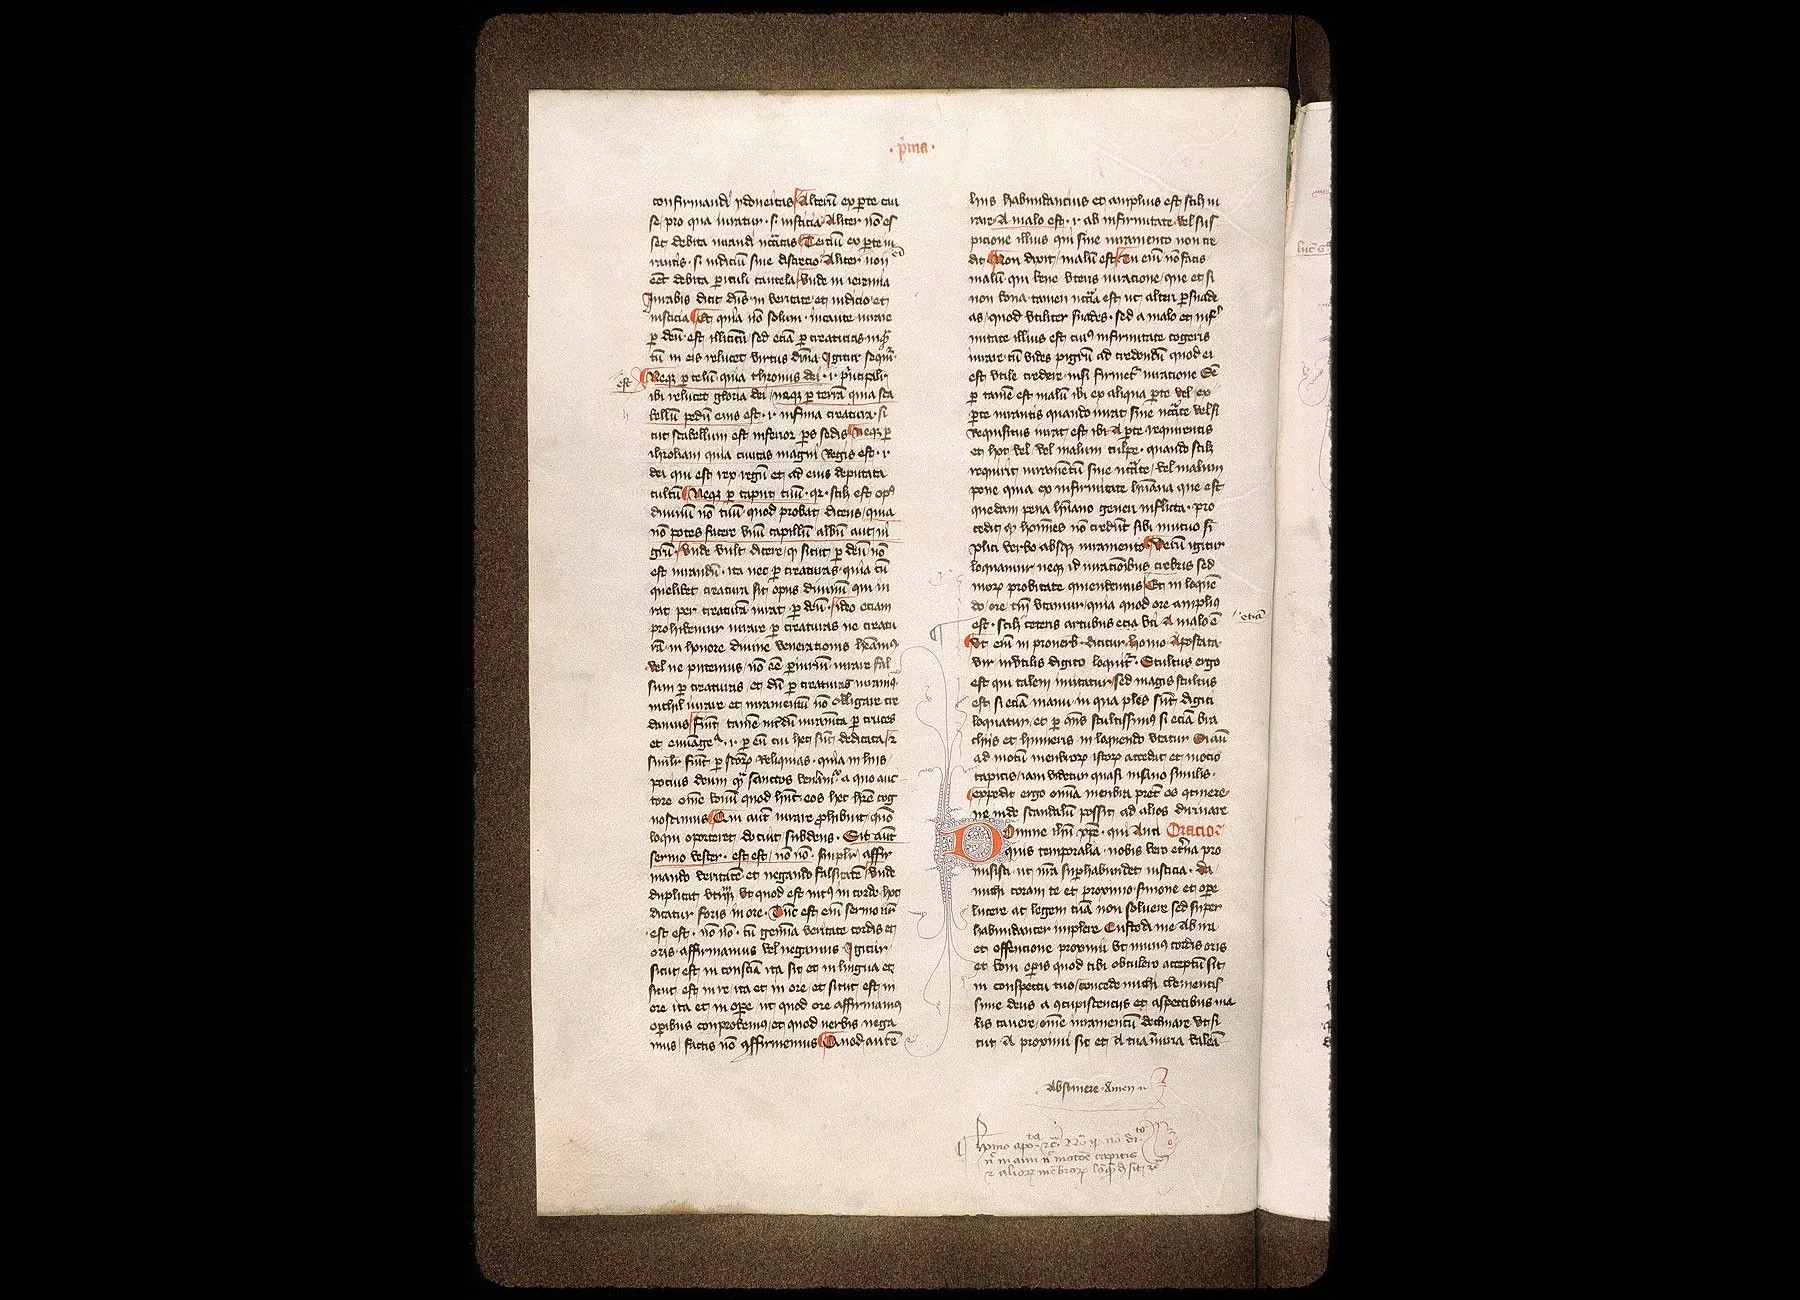 · p̄ma ·
confirmandi ydoneitas Alteru̅ ex p̱te cau
se pro qua iuratur · s · iusticia Aliter no̅ es
set debita iurandi nc̅c̅itas Terciu̅ ex p̱te iu
rantis · s · iudiciu̅ siue discrecio Aliter non
eet̅ debita p̱iculi cautela Unde in ieremia
Iurabis dicit dn̅s in veritate et iudicio et
iusticia Et quia no̅ solum incaute iurare
p̱ deu̅ est illicitu̅ sed ecia̅ p̱ creaturas inq̅
tu̅ in eis relucet virtus diui̅a Igitur sequit̅
est
Neq₃ p̱ celu̅ quia thronus dei · i · p̱ncipalit̅
ibi relucet gloria dei neq₃ p̱ terra̅ quia sca
bellu̅ pedu̅ eius est · i · infima creatura · si
cut scabellum est inferior p̱s sedis Neq₃ p̱
ihrosolimam quia ciuitas magni Regis est · i ·
dei qui est rex regu̅ et ad eius deputata
cultu̅ Neq₃ p̱ caput tuu̅ · qr · scil₃ est op⁹
diuinu̅ no̅ tuu̅ quod probat dicens quia
no̅ potes facere vnu̅ capillu̅ albu̅ aut ni
gru̅ Unde vult dicere q̱ sicut p̱ deu̅ no̅
est iurandu̅ · ita nec p̱ creaturas quia cu̅
quelibet creatura sit opus diuinu̅ qui iu
rat per creatura̅ iurat p̱ deu̅ · ideo etiam
prohibemur iurare p̱ creaturas ne creatu
ra̅ in honore diuine venerationis h̅eam⁹
vel ne putemus no̅ ee̅ p̱iuriu̅ iurare fal
sum p̱ creaturas et du̅ p̱ creaturas iuram⁹
nichil iurare et iuramentu̅ no̅ obligare cre
damus Fiu̅t tame̅ int̅du̅ iurame̅ta p̱ cruces
et euua̅ge · i · p̱ eu̅ cui hec su̅t dedicata
simil̅r fiu̅t p̱ scto̅ꝝ reliquias · quia in hiis
pocius deum q̅ sanctos venam̅ · a quo auc
tore om̅e bonu̅ quod hn̅t eos hec h̅re cog
noscimus Qui aut̅ iurare p̱hibuit quo̅
loqui oporteret docuit subdens · Sit aut̅
sermo vester · est est · no̅ no̅ simpl̅r affir
mando veritate̅ et negando falsitate̅ Unde
duplicat vtru̅q₃ vt quod est int⁹ in corde hoc
dicatur foris in ore · Tu̅c est eni̅ sermo n̅r
· est est · no̅ no̅ · cu̅ gemi̅a veritate cordis et
oris affirmamus vel negamus Igitur
sicut est in consc̅ia ita sit et in lingua et
sicut est in re ita et in ore et sicut est in
ore ita et in op̱e ut quod ore affirmamus
op̱ibus conprobem⁹ et quod verbis nega
mus factis no̅ ꝯfirmemus Quod aute̅
hiis habundancius et amplius est scil₃ iu
rare A malo est · i · ab infirmitate vel sus
picione illius qui sine iuramento non cre
dit Non dixit malu̅ est Tu eni̅ no̅ facis
malu̅ qui bene vteris iuratione que etsi
non bona tamen nc̅c̅ia est ut alteri p̱suade
as quod vtiliter suades · sed a malo et infir
mitate illius est cui⁹ infirmitate cogeris
iurare cu̅ vides pigru̅ ad credendu̅ quod ei
est vtile credere nisi firmet̅ iuratione Se̅
p̱ tame̅ est malu̅ ibi ex aliqua p̱te vel ex
p̱te iurantis quando iurat sine nc̅c̅ite vel si
requisitus iurat est ibi A p̱te requirentis
et hoc vel vel malum culpe · quando scil₃
requirit iuramentu̅ sine nc̅c̅ite vel malum
pene quia ex infirmitate hu̅ana que est
quedam pena hu̅ano generi inflicta · pro
cedit q̱ homi̅es no̅ credu̅t sibi mutuo si̅
plici verbo absq₃ iuramento Veru̅ igitur
loquamur neq₃ id iurationibus crebris sed
moꝝ probitate emendemus Et in loque̅
do ore tm̅ vtamur quia quod ore amplius
etia̅
est · scil₃ ceteris artubus ecia̅ vti A malo e̅
Ut eni̅ in prouerb · dicitur Homo Apostata
vir inutilis digito loquit̅ · Stultus ergo
est qui talem imitatur sed magis stultus
est si ecia̅ manu in qua p̱les su̅t digiti
loquatur et p̱ o̅ns stultissim⁹ si ecia̅ bra
chiis et humeris in loquendo vtatur Qua̅
ad motu̅ menbroꝝ istoꝝ accedat et motio
capitis iam videtur quasi insano similis ·
Expedit ergo omnia menbra pret̅ os ꝯtinere
ne inde scandalu̅ possit ad alios diriuare
Domine ih̅u xp̱e · qui Anti Oracio
quis temporalia · nobis vero et̅na pro
misisti ut n̅ra sup̱habundet iusticia · Da
michi coram te et proximo sermone et op̱e
lucere ac legem tua̅ non soluere sed super
habundanter implere Custodi me Ab ira
et offencione proximi vt mun⁹ cordis oris
et boni op̱is quod tibi obtulero acceptu̅ sit
in conspectu tuo concede michi clementis
sime deus a ꝯcupiscenciis et aspectibus ma
lis cauere om̅e iuramentu̅ declinare vt si
cut A proximi sic et A tua iniuria valea̅
abstinere · Amen
Homo apo^ta · ⁊c̅ ·
n̅ manu n̅ motione capitis
⁊ alioꝝ me̅broꝝ